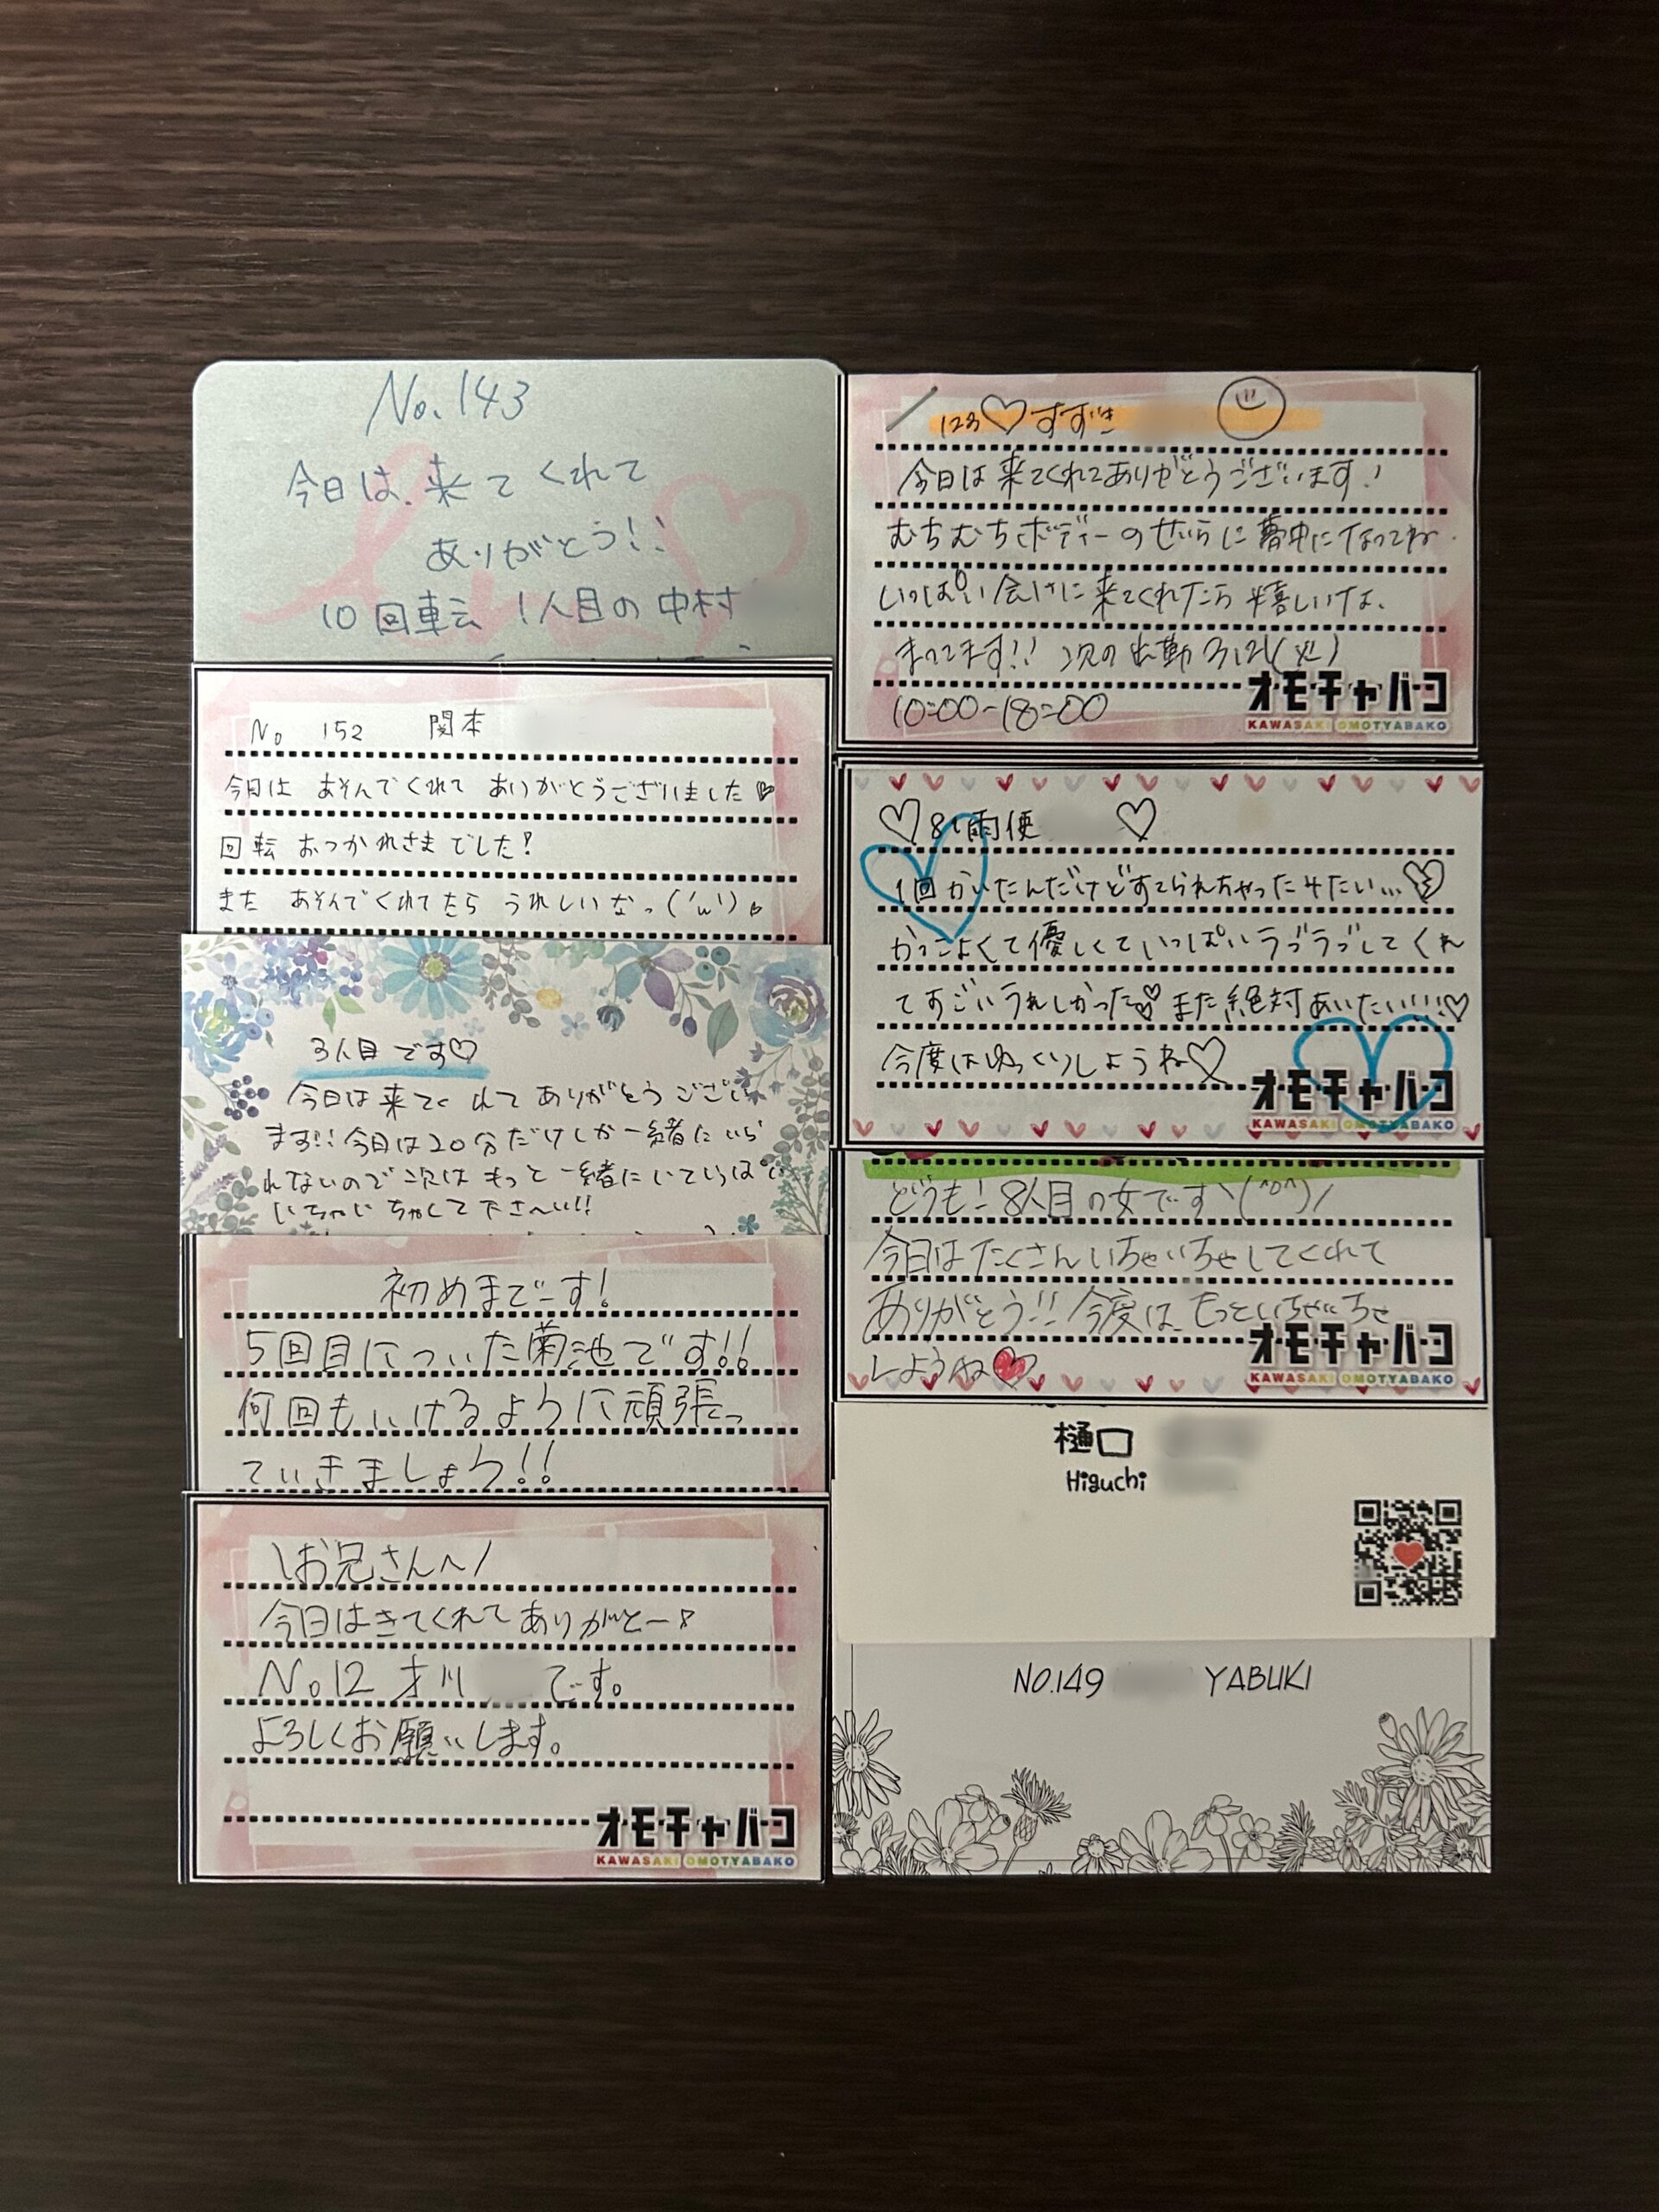 No.143
今日は、来てくれて
ありがとう!!
10回転 1人目の 中村
No 152 関本
今日は あそんでくれて ありがとうございました♡
回転 おつかれさまでした!
また あそんでくれたら うれしいなっ('ω')♡
3人目です♡
今日は来てくれて ありがとうござい
ます!! 今日は20分だけしか一緒にいら
れないので 次は もっと 一緒にいていっぱい
いちゃいちゃして下さーい!!
初めまでーす!
5回目についた菊池です!!
何回もいけるように頑張っ
ていきましょう!!
\お兄さん〜/
今日はきてくれてありがとー♪
No.12 才川 です。
よろしくお願いします。
オモチャバコ
KAWASAKI OMOTYABAKO
123♡すずき
今日は来てくれてありがとうございます!
むちむちボディーのせいらに夢中になってね
いっぱい会いに来てくれたら嬉しいな、
まってます!! 次の出勤 3/21(火)
10:00-18:00
オモチャバコ
KAWASAKI OMOTYABAKO
♡81雨 ♡
1回かいたんだけどすてられちゃったみたい...💔
かっこよくて優しくていっぱいラブラブしてくれ
てすごいうれしかった♡ また絶対あいたい!!!♡
今度はゆっくりしようね♡
オモチャバコ
KAWASAKI OMOTYABAKO
どうも! 8人目の女です\(^o^)/
今日はたくさんいちゃいちゃしてくれて
ありがとう!! 今度は、もっといちゃいちゃ
しようね♥
オモチャバコ
KAWASAKI OMOTYABAKO
樋口
Higuchi
NO.149 YABUKI